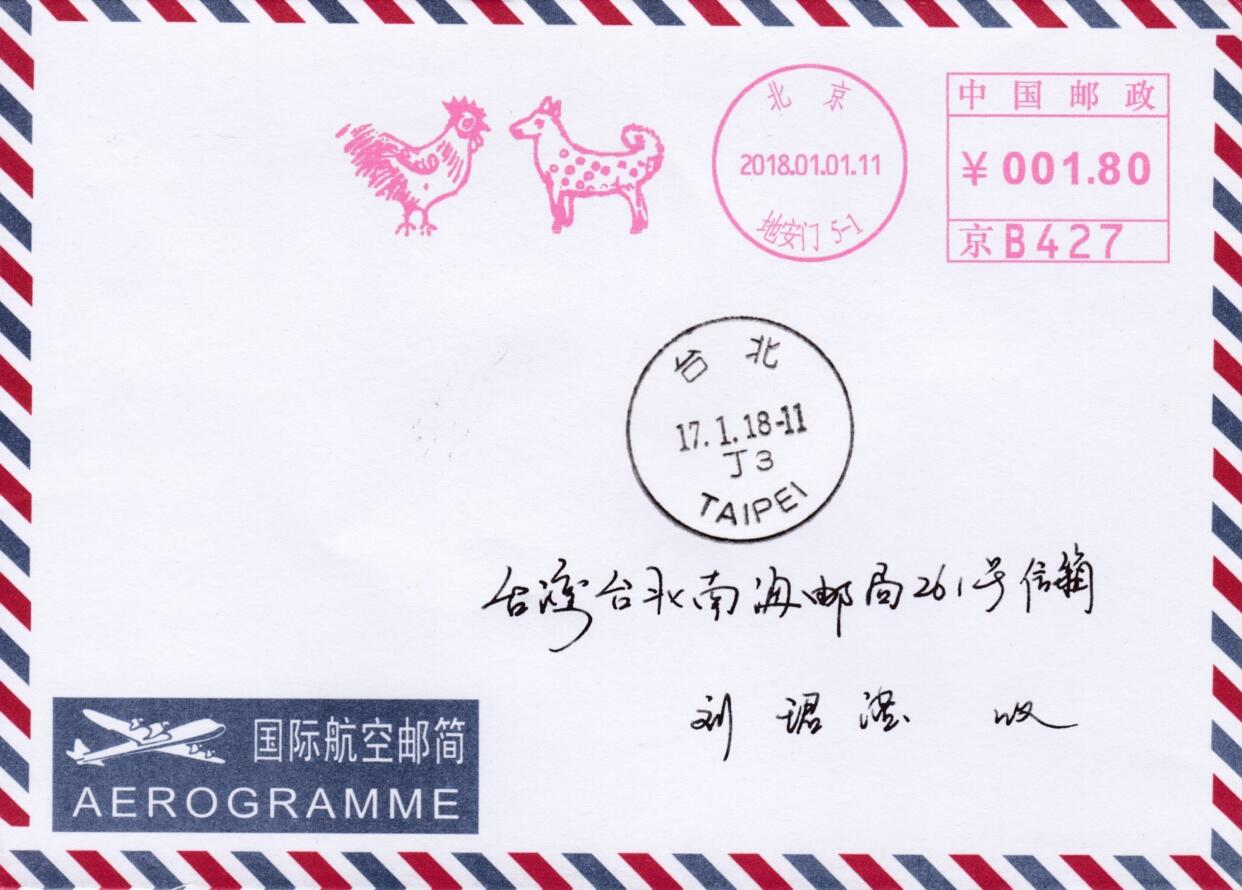 北京
2018.01.01.11
地安门 5-1
中国邮政
¥ 001.80
京B427
台北
17.1.18-11
J3
TAIPEI
台湾台北南海邮局261号信箱
刘珺 收
国际航空邮简
AEROGRAMME